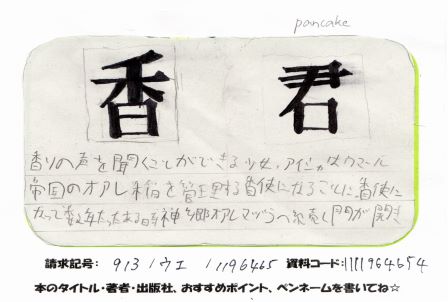 pancake
香君
香りの声を聞くことができる少女・アイシャはウマール
帝国のオアレ稲を管理する香使になることに 香使に
なって数年たったある時 神郷オアレマヅラへの 続く門が開き
請求記号： 913 / ウエ / 11196465 資料コード：1111964654
本のタイトル・著者・出版社、おすすめポイント、ペンネームを書いてね☆